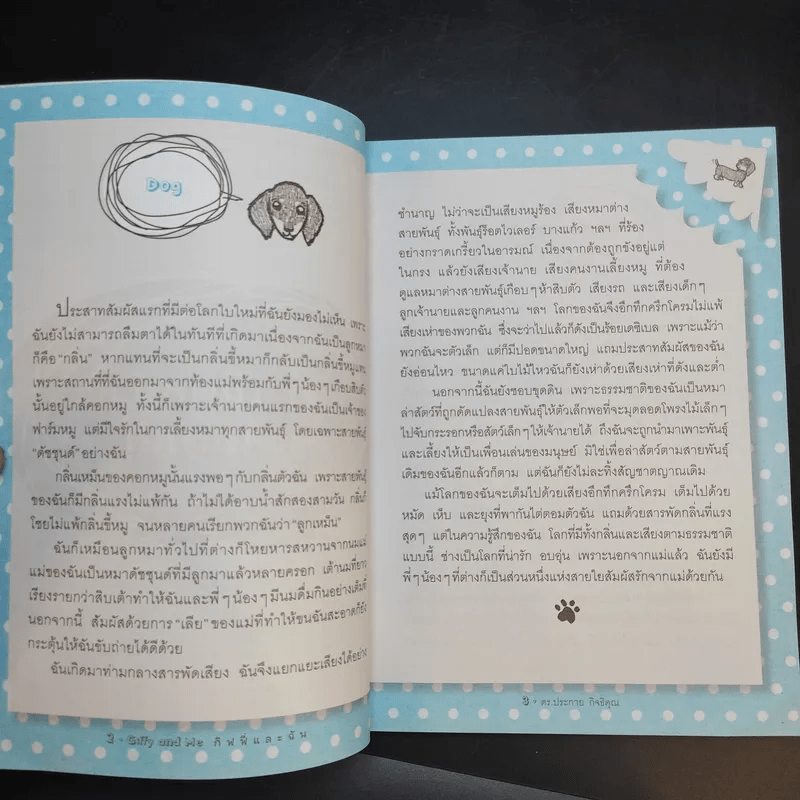 Dog
ประสาทสัมผัสแรกที่มีต่อโลกใบใหม่ที่ฉันยังมองไม่เห็น เพราะ
ฉันยังไม่สามารถลืมตาได้ในทันทีที่เกิดมาเนื่องจากฉันเป็นลูกหมา
ก็คือ "กลิ่น" หากแทนที่จะเป็นกลิ่นขี้หมาก็กลับเป็นกลิ่นขี้หมูแทน
เพราะสถานที่ที่ฉันออกมาจากท้องแม่พร้อมกับพี่ๆน้องๆเกือบสิบตัว
นั้นอยู่ใกล้คอกหมู ทั้งนี้ก็เพราะเจ้านายคนแรกของฉันเป็นเจ้าของ
ฟาร์มหมู แต่มีใจรักในการเลี้ยงหมาทุกสายพันธุ์ โดยเฉพาะสายพันธุ์
"ดัชชุนด์" อย่างฉัน
กลิ่นเหม็นของคอกหมูนั้นแรงพอๆกับกลิ่นตัวฉัน เพราะสายพันธุ์
ของฉันก็มีกลิ่นแรงไม่แพ้กัน ถ้าไม่ได้อาบน้ำสักสองสามวัน กลิ่นก็
โชยไม่แพ้กลิ่นขี้หมู จนหลายคนเรียกพวกฉันว่า "ลูกเหม็น"
ฉันก็เหมือนลูกหมาทั่วไปที่ต่างก็โหยหารสหวานจากนมแม่
แม่ของฉันเป็นหมาดัชชุนด์ที่มีลูกมาแล้วหลายครอก เต้านมที่ยาว
เรียงรายกว่าสิบเต้าทำให้ฉันและพี่ๆน้องๆมีนมดื่มกินอย่างเต็มที่
นอกจากนี้ สัมผัสด้วยการ "เลีย" ของแม่ที่ทำให้ขนฉันสะอาดก็ยัง
กระตุ้นให้ฉันขับถ่ายได้ดีด้วย
ฉันเกิดมาท่ามกลางสารพัดเสียง ฉันจึงแยกแยะเสียงได้อย่าง
2 • Giffy and Me กิฟฟี่และฉัน
ชำนาญ ไม่ว่าจะเป็นเสียงหมูร้อง เสียงหมาต่าง
สายพันธุ์ ทั้งพันธุ์ร็อตไวเลอร์ บางแก้ว ฯลฯ ที่ร้อง
อย่างกราดเกรี้ยวในอารมณ์ เนื่องจากต้องถูกขังอยู่แต่
ในกรง แล้วยังเสียงเจ้านาย เสียงคนงานเลี้ยงหมู ที่ต้อง
ดูแลหมาต่างสายพันธุ์เกือบๆห้าสิบตัว เสียงรถ และเสียงเด็กๆ
ลูกเจ้านายและลูกคนงาน ฯลฯ โลกของฉันจึงอึกทึกครึกโครมไม่แพ้
เสียงเห่าของพวกฉัน ซึ่งจะว่าไปแล้วก็ดังเป็นร้อยเดซิเบล เพราะแม้ว่า
พวกฉันจะตัวเล็ก แต่ก็มีปอดขนาดใหญ่ แถมประสาทสัมผัสของฉัน
ยังอ่อนไหว ขนาดแค่ใบไม้ไหวฉันก็ยังเห่าด้วยเสียงเห่าที่ดังและต่ำ
นอกจากนี้ฉันยังชอบขุดดิน เพราะธรรมชาติของฉันเป็นหมา
ล่าสัตว์ที่ถูกดัดแปลงสายพันธุ์ให้ตัวเล็กพอที่จะมุดลอดโพรงไม้เล็กๆ
ไปจับกระรอกหรือสัตว์เล็กๆให้เจ้านายได้ ถึงฉันจะถูกนำมาเพาะพันธุ์
และเลี้ยงให้เป็นเพื่อนเล่นของมนุษย์ มิใช่เพื่อล่าสัตว์ตามสายพันธุ์
เดิมของฉันอีกแล้วก็ตาม แต่ฉันก็ยังไม่ละทิ้งสัญชาตญาณเดิม
แม้โลกของฉันจะเต็มไปด้วยเสียงอึกทึกครึกโครม เต็มไปด้วย
หมัด เห็บ และยุงที่พากันไต่ตอมตัวฉัน แถมด้วยสารพัดกลิ่นที่แรง
สุดๆ แต่ในความรู้สึกของฉัน โลกที่มีทั้งกลิ่นและเสียงตามธรรมชาติ
แบบนี้ ช่างเป็นโลกที่น่ารัก อบอุ่น เพราะนอกจากแม่แล้ว ฉันยังมี
พี่ๆน้องๆที่ต่างก็เป็นส่วนหนึ่งแห่งสายใยสัมผัสรักจากแม่ด้วยกัน
3 • ดร.ประกาย กิจธิคุณ